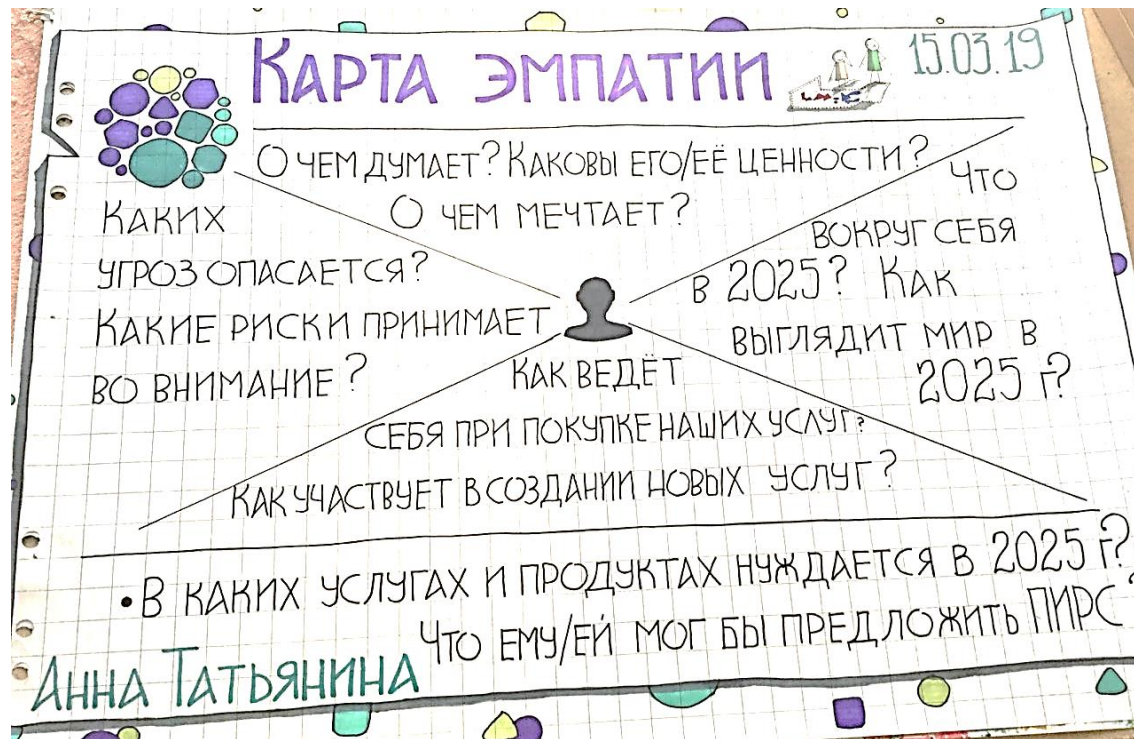 КАРТА ЭМПАТИИ
15.03.19
О ЧЕМ ДУМАЕТ? КАКОВЫ ЕГО/ЕЁ ЦЕННОСТИ?
О ЧЕМ МЕЧТАЕТ?
КАКИХ
УГРОЗ ОПАСАЕТСЯ?
КАКИЕ РИСКИ ПРИНИМАЕТ
ВО ВНИМАНИЕ?
ЧТО
ВОКРУГ СЕБЯ
В 2025? КАК
ВЫГЛЯДИТ МИР В
2025 Г?
КАК ВЕДЁТ
СЕБЯ ПРИ ПОКУПКЕ НАШИХ УСЛУГ?
КАК УЧАСТВУЕТ В СОЗДАНИИ НОВЫХ УСЛУГ?
• В КАКИХ УСЛУГАХ И ПРОДУКТАХ НУЖДАЕТСЯ В 2025 Г?
ЧТО ЕМУ/ЕЙ МОГ БЫ ПРЕДЛОЖИТЬ ПИРС
АННА ТАТЬЯНИНА